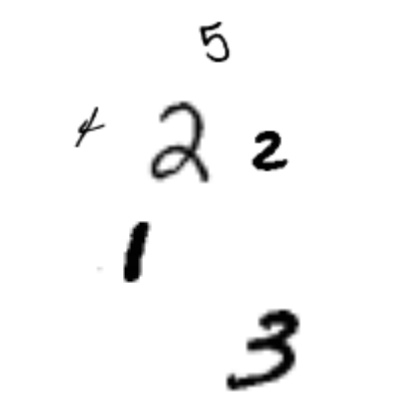 5
4 2 2
1
3